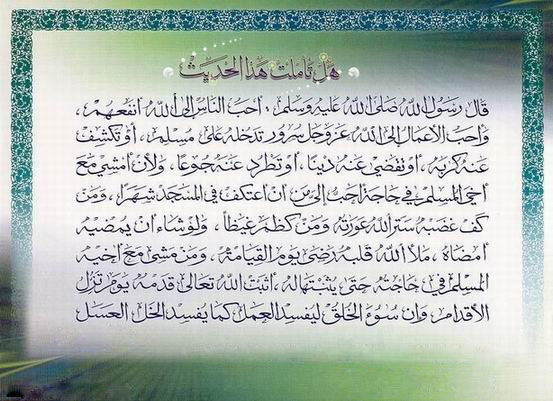 هل تأملت هذا الحديث
قال رسول الله صلى الله عليه وسلم : أحب الناس إلى الله أنفعهم ،
وأحب الأعمال إلى الله عز وجل سرور تدخله على مسلم ، أو تكشف
عنه كربه ، أو تقضي عنه دينا ، أو تطرد عنه جوعا ، ولأن أمشي مع
أخي المسلم في حاجة أحب إلي من ان اعتكف في المسجد شهرا ، ومن
كف غضبه ستر الله عورته ومن كظم غيظا ، ولو شاء ان يمضيه
امضاه ، ملأ الله قلبه رضى يوم القيامة ، ومن مشى مع أخيه
المسلم في حاجته حتى يثبتها له ، أثبت الله تعالى قدمه يوم تزل
الأقدام ، وان سوء الخلق ليفسد العمل كما يفسد الخل العسل